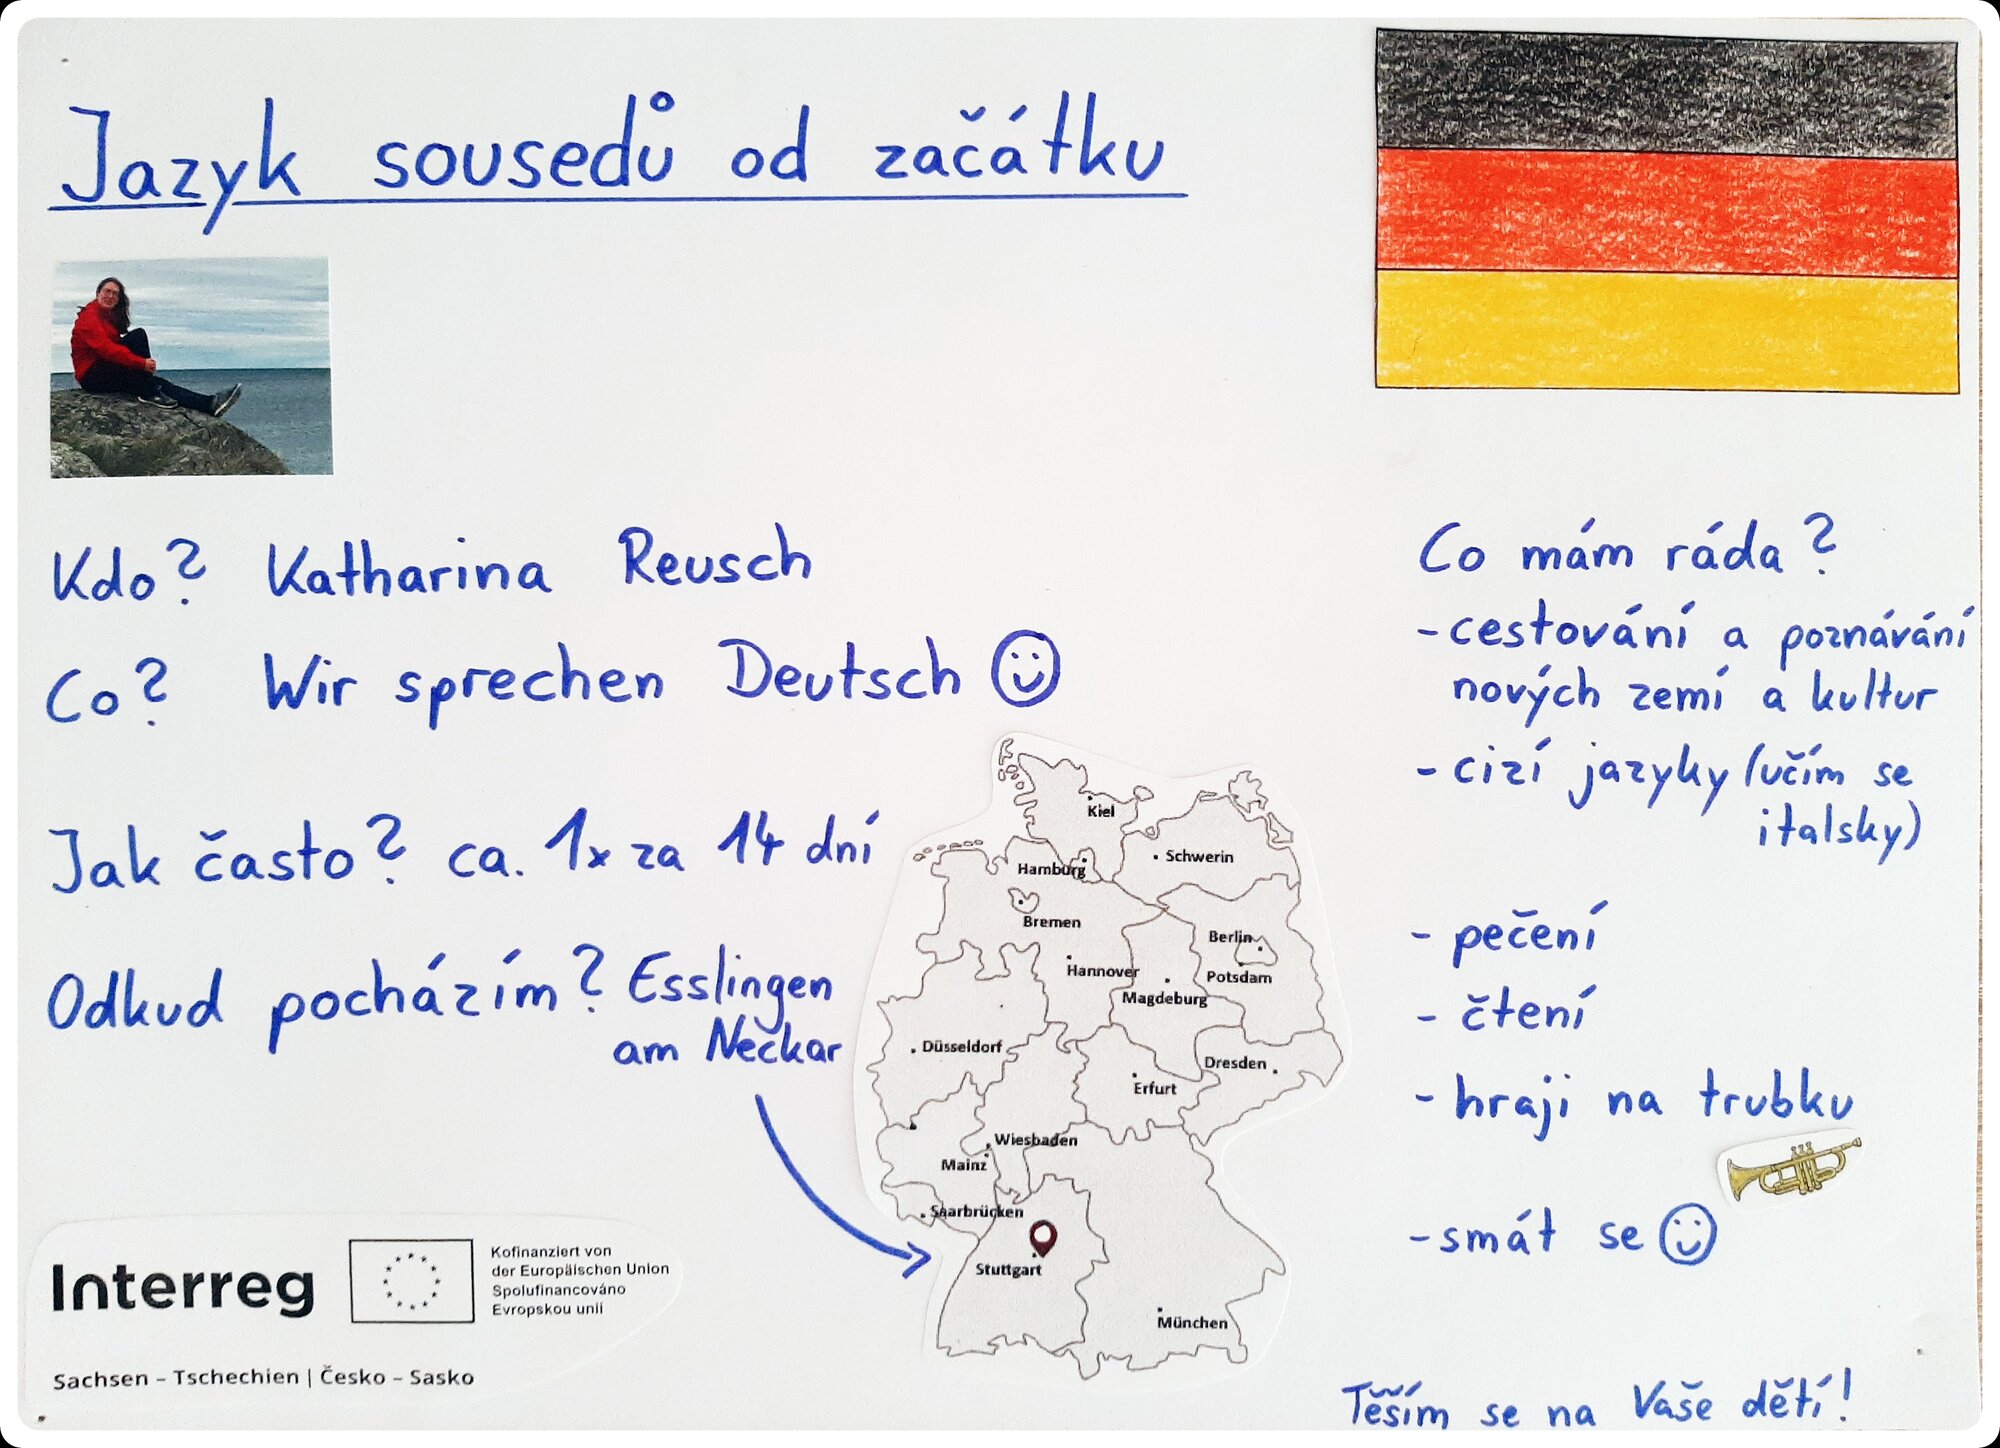 Jazyk sousedů od začátku
Kdo? Katharina Reusch
Co? Wir sprechen Deutsch
Jak často? ca. 1x za 14 dní
Odkud pocházím? Esslingen
am Neckar
Co mám ráda?
- cestování a poznávání
nových zemí a kultur
- cizí jazyky (učím se
italsky)
- pečení
- čtení
- hraji na trubku
- smát se
Kiel
Schwerin
Hamburg
Bremen
Berlin
Hannover
Potsdam
Magdeburg
Düsseldorf
Dresden
Erfurt
Wiesbaden
Mainz
Saarbrücken
Stuttgart
München
Interreg
Kofinanziert von
der Europäischen Union
Spolufinancováno
Evropskou unií
Sachsen – Tschechien | Česko – Sasko
Těším se na Vaše děti!